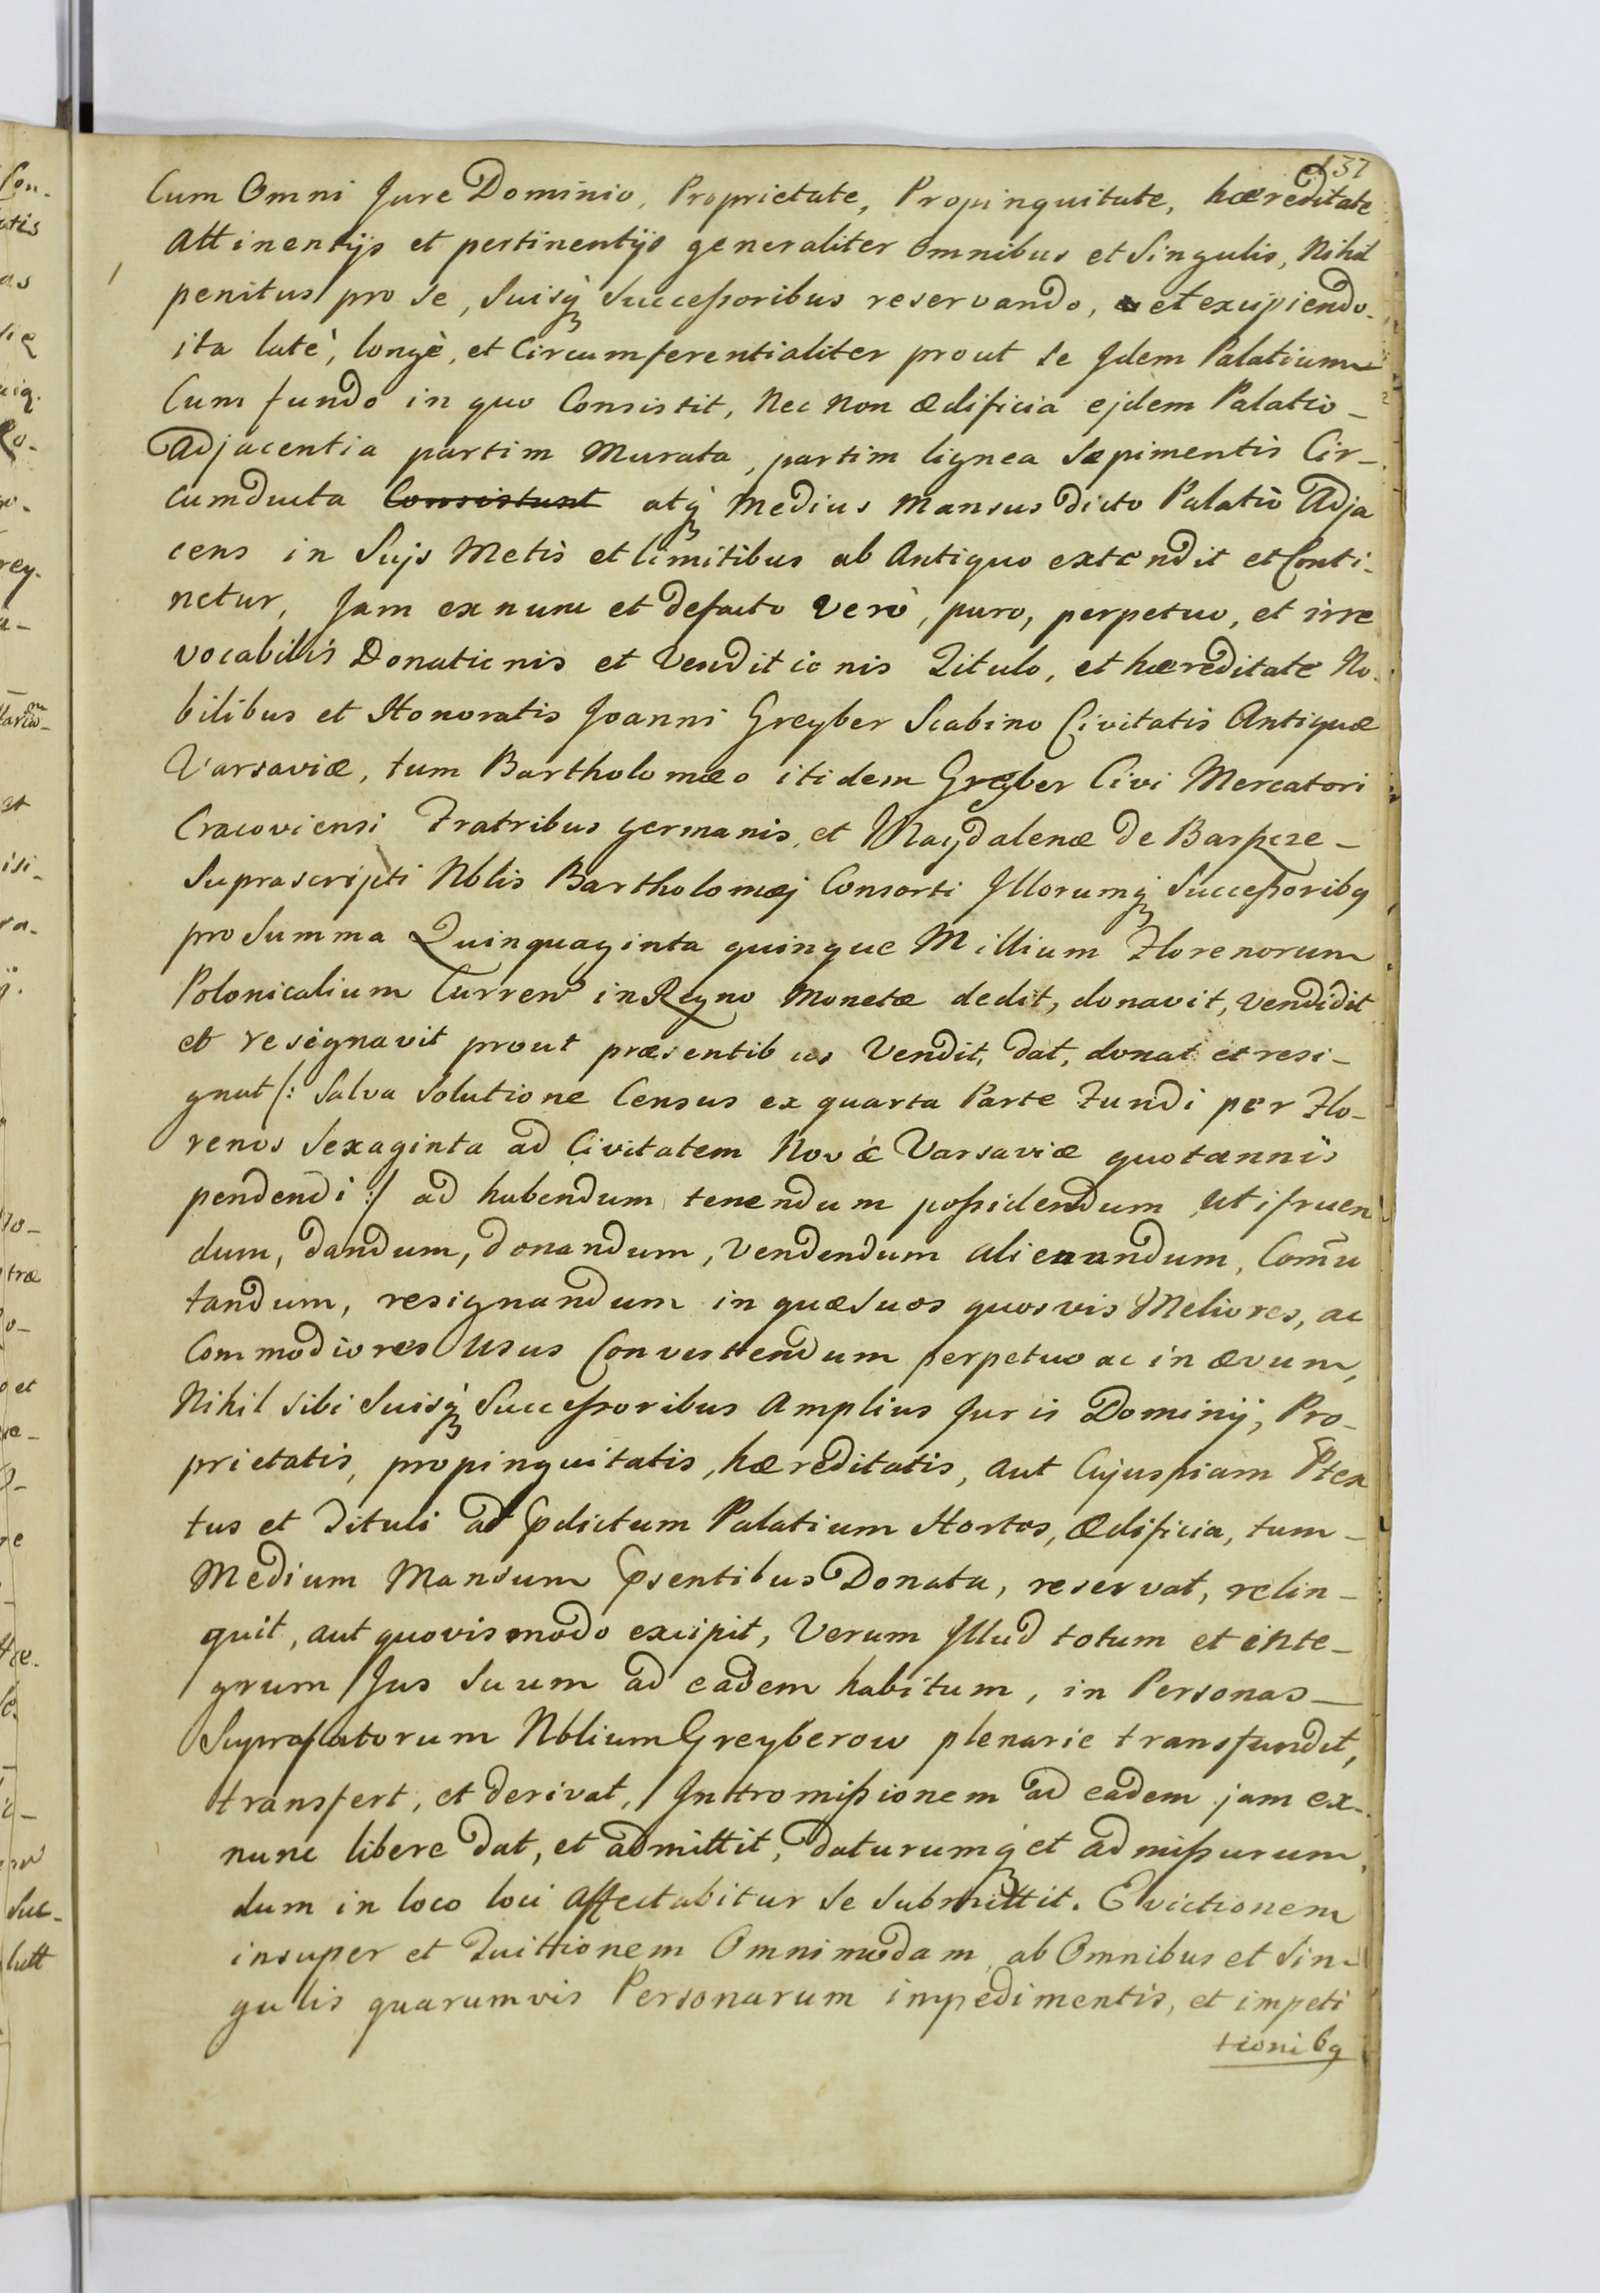 137
Cum Omni Jure Dominio, Proprietate, Propinquitate, hæreditate
Attinentijs et pertinentijs generaliter omnibus et Singulis, Nihil
penitus pro se, Suisq; Successoribus reservando, et excipiendo.
ita latè, longè, et Circumferentialiter prout se Jdem Palatium
Cum fundo in quo Consistit, Nec non ædificia ejdem Palatio-
Adjacentia partim Murata, partim lignea Sæpimentis Cir-
cumducta Consistunt atq; Medius Mansus dicto Palatio Adja
cens in Sujs Metis et limitibus ab Antiquo extendit et Conti-
netur, Jam ex nunc et defacto Verò, puro, perpetuo, et irre
vocabilis Donationis et Venditionis Titulo, et hæreditate No-
bilibus et Honoratis Joanni Greyber Scabino Civitatis Antiquæ
Varsaviæ, tum Bartholomæo itidem Greyber Civi Mercatori
Cracoviensi Fratribus germanis, et Magdalenæ de Barpcze-
Suprascripti Nblis Bartholomæj Consorti Jllorumq; Successoribq
pro Summa Quinquaginta quinque Millium Florenorum
Polonicalium Curren in Regno Monetæ dedit, donavit, vendidit
et resignavit prout præsentibus Vendit, dat, donat et resi-
gnat /: Salva Solutione Census ex quarta Parte Fundi per Flo-
renos Sexaginta ad Civitatem Novæ Varsaviæ quotannis
pendendi :/ ad habendum tenendum possidendum utifruen
dum, dandum, donandum, vendendum alienandum, Com̃u
tandum, resignandum in quæ suos quosvis Meliores, ac
Commodiores Usus Convertendum perpetuo ac in ævum,
Nihil sibi Suisq; Successoribus Amplius Juris Dominij, Pro-
prietatis, propinquitatis, hæreditatis, aut Cujuspiam Ptex
tus et Tituli ad pdictum Palatium Hortos, Ædificia, tum-
Medium Mansum psentibus Donata, reservat, relin-
quit, aut quovismodo excipit, Verum Jllud totum et inte-
grum Jus Suum ad eadem habitum, in Personas-
Suprafatorum Nblium Greyberow plenarie transfundit,
transfert, et derivat, Jnttromissionem ad eadem jam ex-
nunc libere dat, et admittit, daturumq; et admissurum,
dum in loco loci affectabitur se submittit. Evictionem
insuper et Tuittionem Omnimodam ab Omnibus et Sin-
gulis quarumvis Personarum impedimentis, et impeti
tionibq